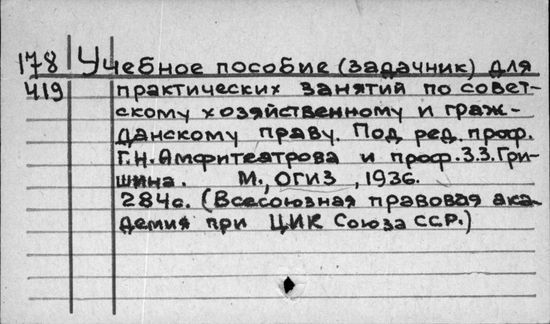 178 Учебное пособие (задачник) для
419 практических занятий по совет-
скому хозяйственному и граж-
данскому праву. Под ред. проф.
Г.Н. Амфитеатрова и проф. З.З. Гри-
шина. М., ОГИЗ, 1936.
284с. (Всесоюзная правовая ака-
демия при ЦИК Союза ССР.)